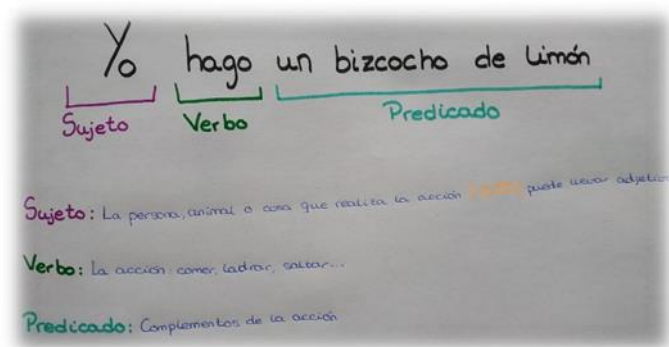 Yo hago un bizcocho de limón
Sujeto Verbo Predicado
Sujeto: La persona, animal o cosa que realiza la acción puede llevar adjetivos
Verbo: La acción: comer, ladrar, saltar...
Predicado: Complementos de la acción